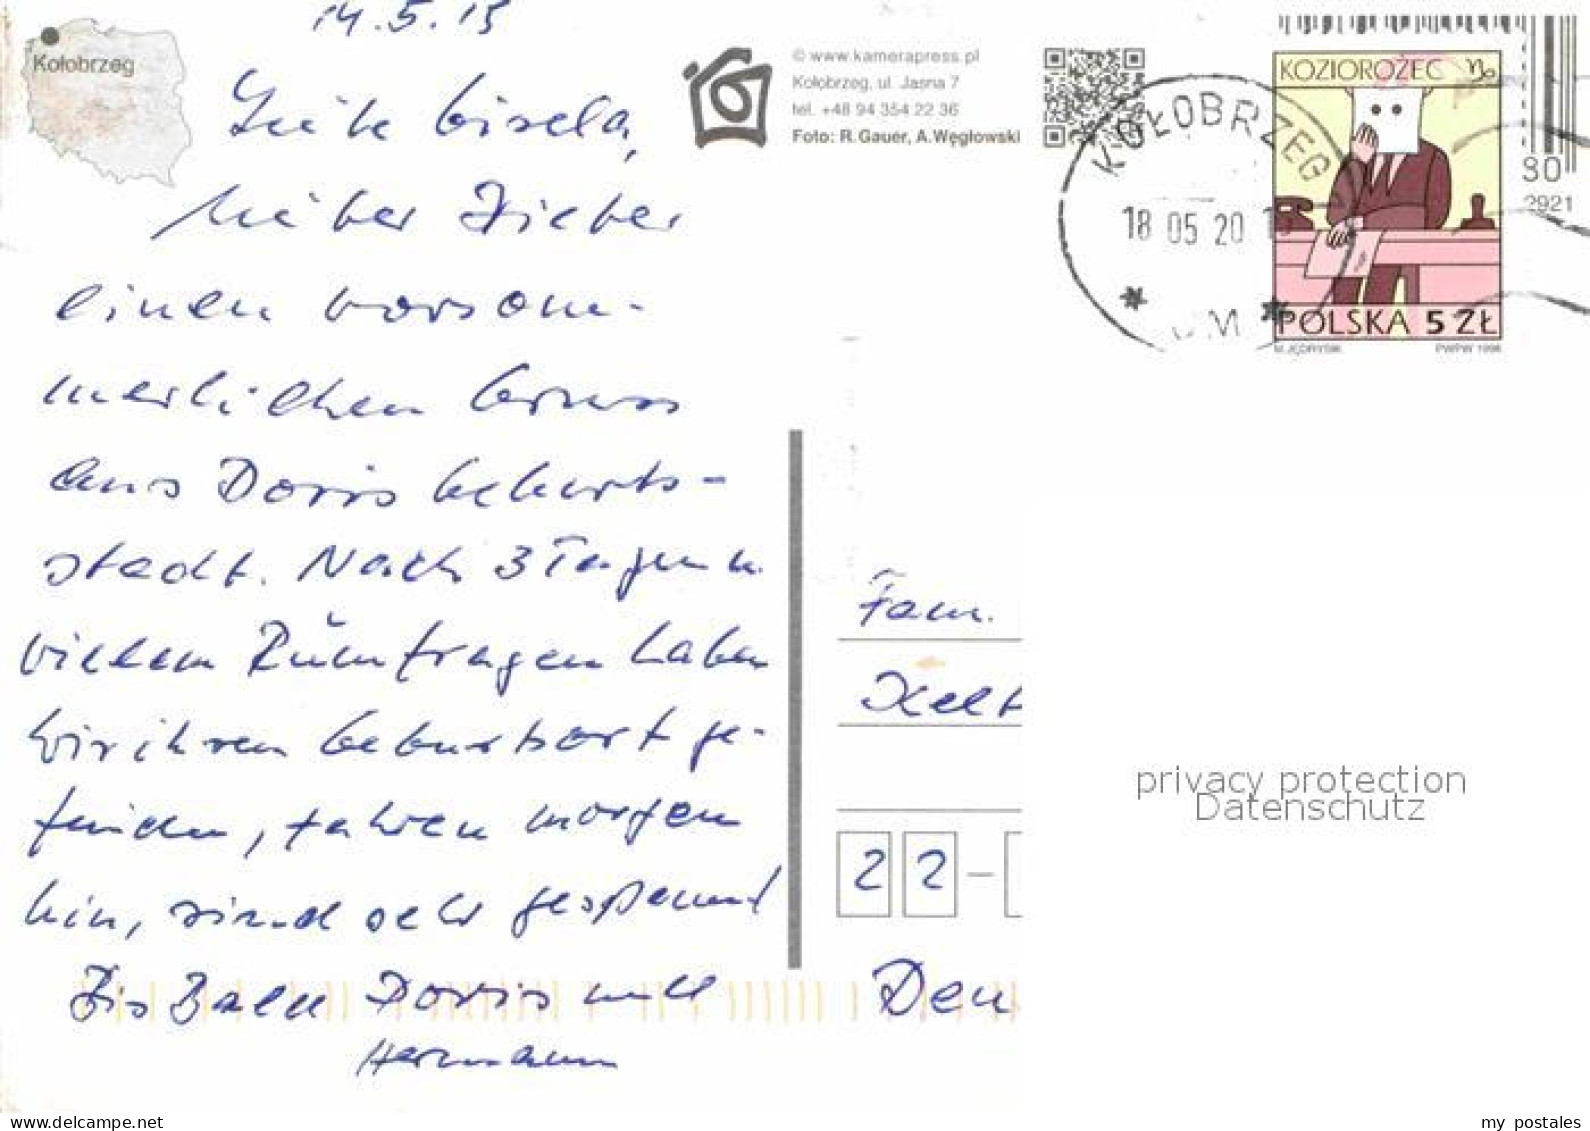 14.5.15
Kołobrzeg
© www.kamerapress.pl
Kołobrzeg, ul. Jasna 7
tel. +48 94 354 22 36
Foto: R. Gauer, A. Węglowski
KOŁOBRZEG
18 05 20
KOZIOROŻEC
POLSKA 5 ZŁ
M. JĘDRYSIK PWPW 1996
30
2921
Liebe Gisela,
lieber Dieter
einen vorsom-
merlichen Gruss
aus Doris Geburts-
stadt. Nach 3 Tagen u.
vielem Rumfragen haben
wir ihren Geburtsort ge-
funden, fahren morgen
hin, sind sehr gespannt
Bis Bald Doris und
Hermann
Fam.
22-
Deu
privacy protection
Datenschutz
my postales